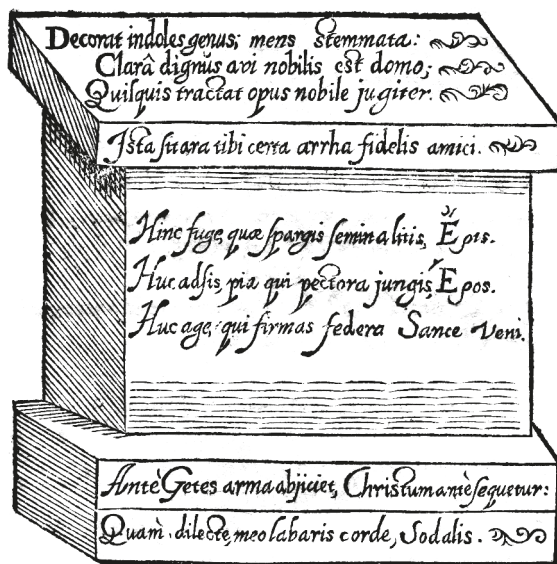 Decorat indoles genus; mens stemmata:
Clarâ dignus avi nobilis est domo,
Quisquis tractat opus nobile jugiter.
Ista sit ara tibi certa arrha fidelis amici.
Hinc fuge, quæ spargis semina litis, Ἔρις.
Huc adsis, pia qui pectora jungis, Ἔρος.
Huc age, qui firmas federa Sance Veni.
Antè Getes arma abjiciet, Christum antè sequetur:
Quam, dilecte, meo labaris corde, Sodalis.